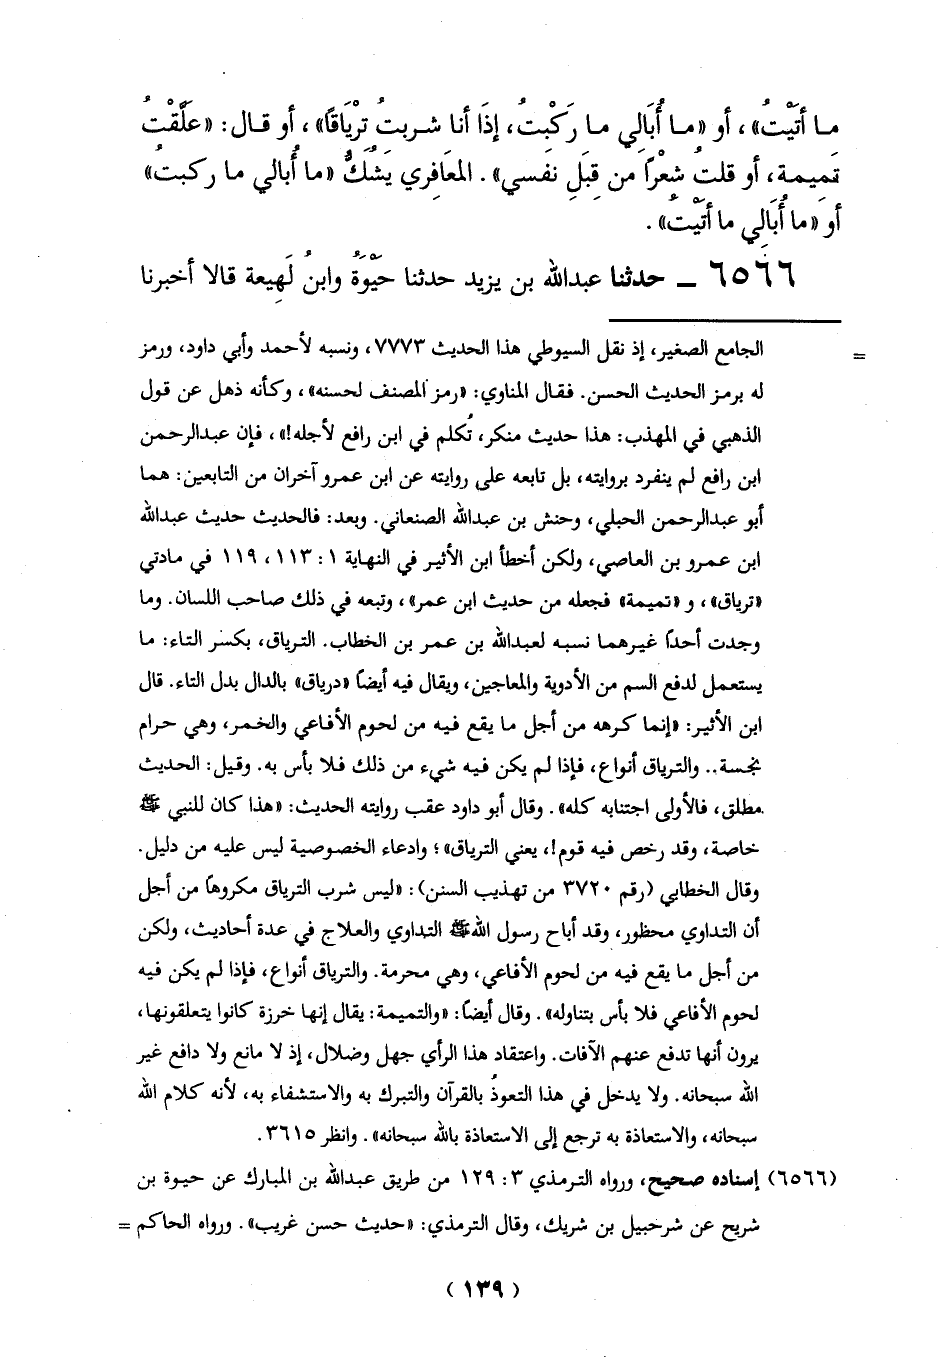 ما أَتَيْتُ»، أو «ما أُبَالي ما رَكَبْتُ، إذَا أنا شربتُ تِرْيَاقًا»، أو قال: «عَلَّقْتُ
تَمِيمة، أو قلتُ شعْرًا من قِبَلِ نفسي». المعَافِري يشُكُّ «ما أُبالي ما ركبتُ»
أو «ما أُبَالي ما أَتَيْتُ».
٦٥٦٦ ــ حدثنا عبدالله بن يزيد حدثنا حَيْوَةُ وابنُ لَهِيعة قالا أخبرنا
= الجامع الصغير، إذ نقل السيوطي هذا الحديث ٧٧٧٣، ونسبه لأحمد وأبي داود، ورمز
له برمز الحديث الحسن. فقال المناوي: «رمز المصنف لحسنه»، وكأنه ذهل عن قول
الذهبي في المهذب: هذا حديث منكر، تُكلم في ابن رافع لأجله!»، فإن عبدالرحمن
ابن رافع لم ينفرد بروايته، بل تابعه على روايته عن ابن عمرو آخران من التابعين: هما
أبو عبدالرحمن الحبلي، وحنش بن عبدالله الصنعاني. وبعد: فالحديث حديث عبدالله
ابن عمرو بن العاصي، ولكن أخطأ ابن الأثير في النهاية ١: ١١٣، ١١٩ في مادتي
«ترياق»، و «تميمة» فجعله من حديث ابن عمر»، وتبعه في ذلك صاحب اللسان. وما
وجدت أحدًا غيرهما نسبه لعبدالله بن عمر بن الخطاب. الترياق، بكسر التاء: ما
يستعمل لدفع السم من الأدوية والمعاجين، ويقال فيه أيضًا «درياق» بالدال بدل التاء. قال
ابن الأثير: «إنما كرهه من أجل ما يقع فيه من لحوم الأفاعي والخمر، وهي حرام
نجسة.. والترياق أنواع، فإذا لم يكن فيه شيء من ذلك فلا بأس به. وقيل: الحديث
مطلق، فالأولى اجتنابه كله». وقال أبو داود عقب روايته الحديث: «هذا كان للنبي ﷺ
خاصة، وقد رخص فيه قوم!، يعني الترياق»؛ وادعاء الخصوصية ليس عليه من دليل.
وقال الخطابي (رقم ٣٧٢٠ من تهذيب السنن): «ليس شرب الترياق مكروهًا من أجل
أن التداوي محظور، وقد أباح رسول الله ﷺ التداوي والعلاج في عدة أحاديث، ولكن
من أجل ما يقع فيه من لحوم الأفاعي، وهي محرمة. والترياق أنواع، فإذا لم يكن فيه
لحوم الأفاعي فلا بأس بتناوله». وقال أيضًا: «والتميمة: يقال إنها خرزة كانوا يتعلقونها،
يرون أنها تدفع عنهم الآفات. واعتقاد هذا الرأي جهل وضلال، إذ لا مانع ولا دافع غير
الله سبحانه. ولا يدخل في هذا التعوذُ بالقرآن والتبرك به والاستشفاء به، لأنه كلام الله
سبحانه، والاستعاذة به ترجع إلى الاستعاذة بالله سبحانه». وانظر ٣٦١٥.
(٦٥٦٦) إسناده صحيح، ورواه الترمذي ٣: ١٢٩ من طريق عبدالله بن المبارك عن حيوة بن
شريح عن شرحبيل بن شريك، وقال الترمذي: «حديث حسن غريب». ورواه الحاكم =
(١٣٩)